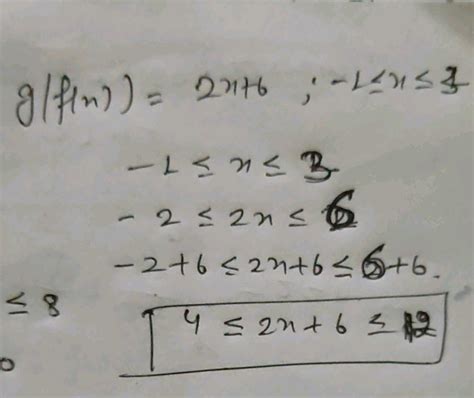 g(f(x)) = 2x+6 ; -1≤x≤3
-1 ≤ x ≤ 3
-2 ≤ 2x ≤ 6
-2+6 ≤ 2x+6 ≤ 6+6.
≤ 8
4 ≤ 2x+6 ≤ 12